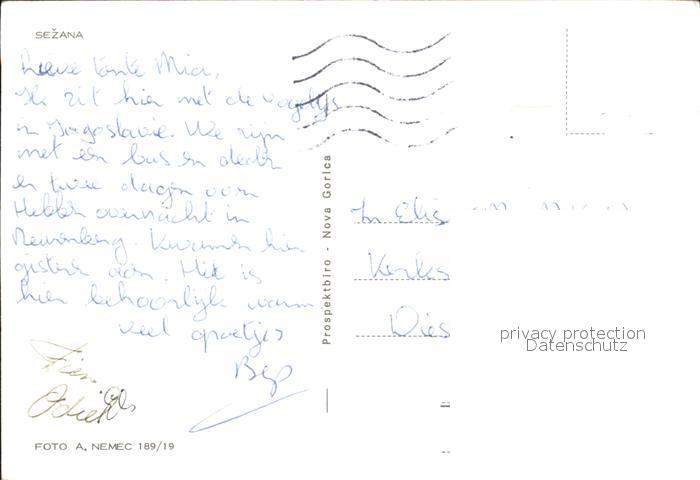 SEŽANA
Lieve tante Mia,
Ik zit hier met de vogeltjs
in Jugoslavie. We zijn
met een bus en deden
er twee dagen over
Hebben overnacht in
Neurenberg. Kwamen hier
gisteren aan. Het is
hier behoorlijk warm
veel groetjes
Bep
FOTO A. NEMEC 189/19
Prospektbiro - Nova Gorica
Elis
Kerks
Dies
privacy protection
Datenschutz